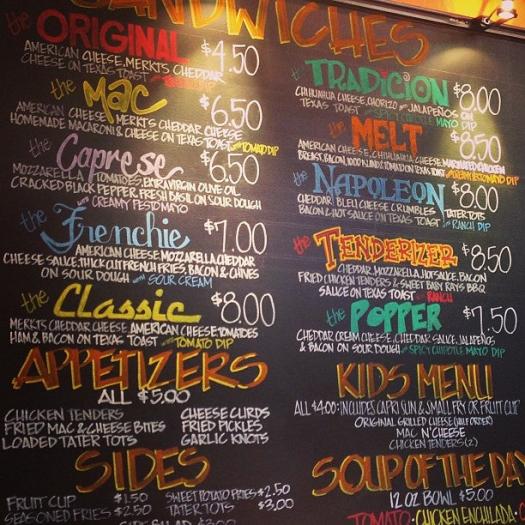 SANDWICHES
the ORIGINAL $4.50
AMERICAN CHEESE, MERKTS CHEDDAR
CHEESE ON TEXAS TOAST
the MAC $6.50
AMERICAN CHEESE, MERKTS CHEDDAR CHEESE
HOMEMADE MACARONI & CHEESE ON TEXAS TOAST with TOMATO DIP
the Caprese $6.50
MOZZARELLA, TOMATOES, EXTRA VIRGIN OLIVE OIL
CRACKED BLACK PEPPER, FRESH BASIL ON SOUR DOUGH
with CREAMY PESTO MAYO
the Frenchie $7.00
AMERICAN CHEESE, MOZZARELLA, CHEDDAR
CHEESE SAUCE, THICK CUT FRENCH FRIES, BACON & CHIVES
ON SOUR DOUGH with SOUR CREAM
the Classic $8.00
MERKTS CHEDDAR CHEESE AMERICAN CHEESE, TOMATOES
HAM & BACON ON TEXAS TOAST with TOMATO DIP
APPETIZERS
ALL $5.00
CHICKEN TENDERS
FRIED MAC & CHEESE BITES
LOADED TATER TOTS
CHEESE CURDS
FRIED PICKLES
GARLIC KNOTS
SIDES
FRUIT CUP $1.50
SEASONED FRIES $2.50
SWEET POTATO FRIES $2.50
TATER TOTS $3.00
SIDE SALAD $3.00
the TRADICION $8.00
CHIHUAHUA CHEESE, CHORIZO with JALAPENOS ON
TEXAS TOAST with SPICY CHIPOTLE MAYO DIP
the MELT $8.50
AMERICAN CHEESE, CHIHUAHUA CHEESE, MARINATED CHICKEN
BREAST, BACON, TOMATO ON TEXAS TOAST DIP
the NAPOLEON $8.00
CHEDDAR, BLEU CHEESE CRUMBLES, TATER TOTS
BACON & HOT SAUCE ON TEXAS TOAST with RANCH DIP
the TENDERIZER $8.50
CHEDDAR, MOZZARELLA, HOT SAUCE, BACON
FRIED CHICKEN TENDERS & SWEET BABY RAYS BBQ
SAUCE ON TEXAS TOAST with RANCH
the POPPER $7.50
CHEDDAR, CREAM CHEESE, CHEDDAR SAUCE, JALAPENOS
& BACON ON SOUR DOUGH with SPICY CHIPOTLE MAYO DIP
KIDS MENU
ALL $4.00 - INCLUDES CAPRI SUN & SMALL FRY OR FRUIT CUP
ORIGINAL GRILLED CHEESE (HALF ORDER)
MAC N' CHEESE
CHICKEN TENDERS (2)
SOUP OF THE DAY
12 OZ BOWL $5.00
TOMATO · CHICKEN ENCHILADA ·